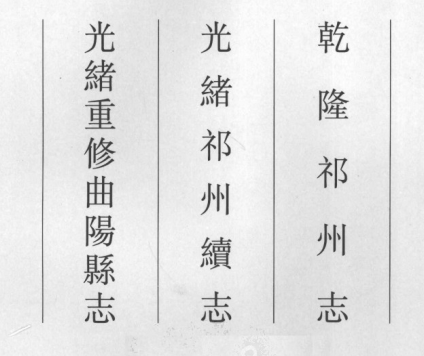 乾隆祁州志
光緒祁州續志
光緒重修曲陽縣志